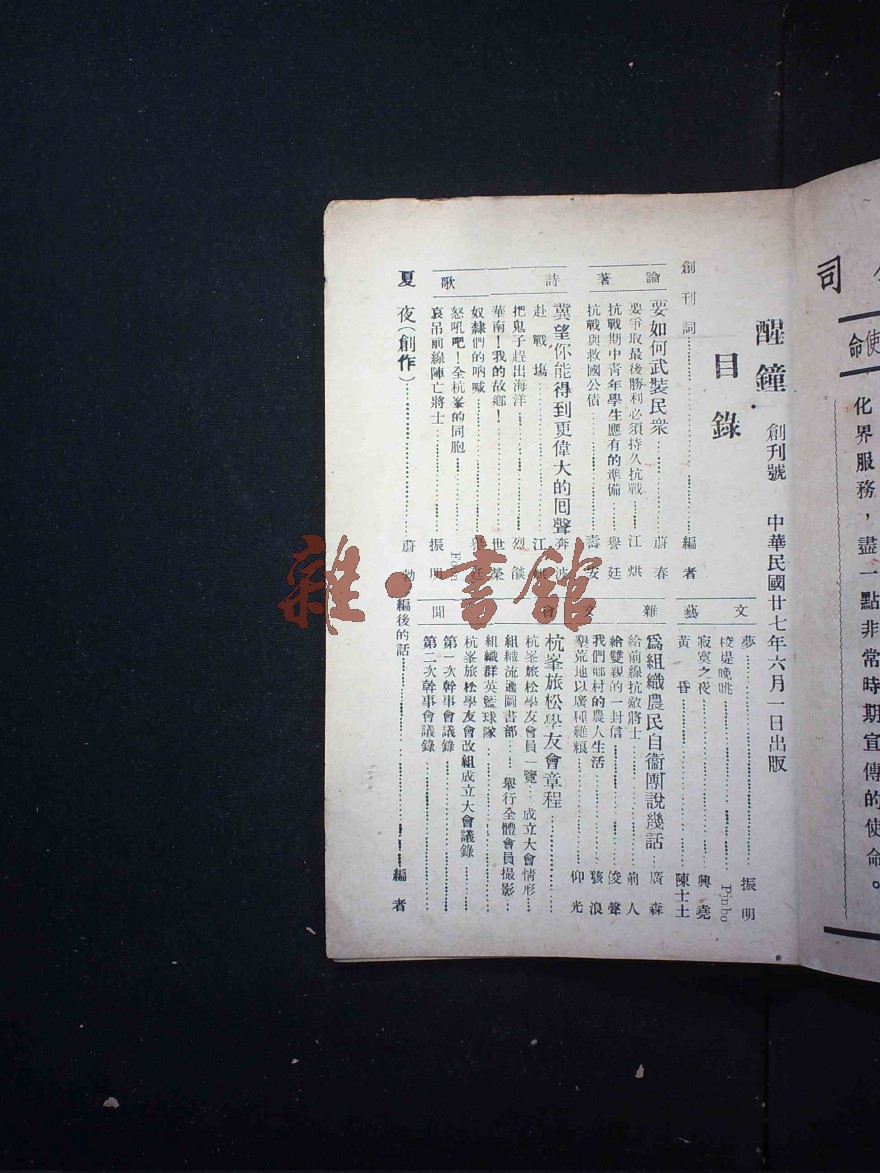 司
使命
化界服務，盡一點非常時期宣傳的使命。
醒鐘 創刊號 中華民國廿七年六月一日出版
目錄
創刊詞 編者
論著
要如何武裝民衆 蔚春
要爭取最後勝利必須持久抗戰 江烘
抗戰期中青年學生應有的準備 譽廷
抗戰與救國公債 壽安
詩歌
冀望你能得到更偉大的囘聲 奔波
赴戰塲 江
把鬼子趕出海洋 烈燄
華南！我的故鄉！ 世榮
奴隸們的吶喊 廷
怒吼吧！全杭峯的同胞 Fon
哀吊前線陣亡將士 振明
夏夜（創作） 蔚勃
文藝
夢 振明
稜堤晚眺 Pinho
寂寞之夜 興堯
黃昏 陳士土
雜文
爲組織農民自衞團說幾話 廣森
給前線抗敵將士 前人
給雙親的一封信 俊聲
我們鄉村的農人生活 駭浪
墾荒地以廣種雜粮 仰光
會聞
杭峯旅松學友會章程
杭峯旅松學友會員一覽 成立大會情形
組織流通圖書部 舉行全體會員撮影
組織群英籃球隊
杭峯旅松學友會改組成立大會議錄
第一次幹事會議錄
第二次幹事會議錄
編後的話 編者
雜·書館